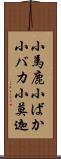 小馬鹿小ばか
小バカ小莫迦